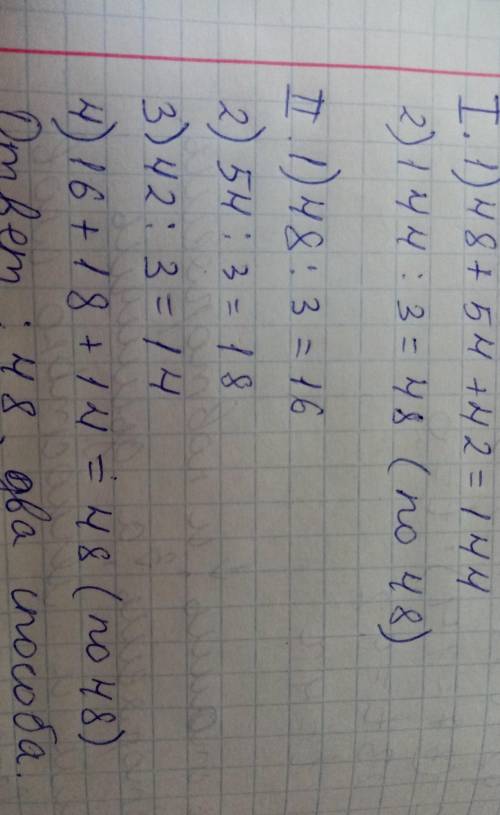 I. 1) 48 + 54 + 42 = 144
2) 144 : 3 = 48 (по 48)
II. 1) 48 : 3 = 16
2) 54 : 3 = 18
3) 42 : 3 = 14
4) 16 + 18 + 14 = 48 (по 48)
Ответ: 48, два способа.